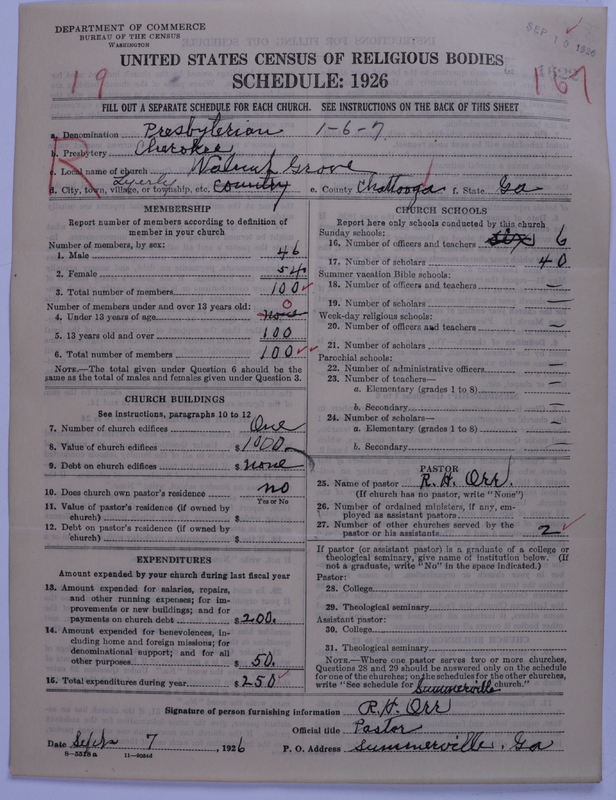 DEPARTMENT OF COMMERCE
BUREAU OF THE CENSUS
WASHINGTON
SEP 10 1926
UNITED STATES CENSUS OF RELIGIOUS BODIES
SCHEDULE: 1926
19
167
FILL OUT A SEPARATE SCHEDULE FOR EACH CHURCH. SEE INSTRUCTIONS ON THE BACK OF THIS SHEET
R
a. Denomination Presbyterian 1-6-7
b. Presbytery Cherokee
c. Local name of church Walnut Grove
d. City, town, village, or township, etc. Lyerly country e. County Chattooga f. State Ga
MEMBERSHIP
Report number of members according to definition of member in your church
Number of members, by sex:
1. Male 46
2. Female 54
3. Total number of members 100
Number of members under and over 13 years old:
4. Under 13 years of age none 0
5. 13 years old and over 100
6. Total number of members 100
NOTE.—The total given under Question 6 should be same as the total of males and females given under Question 3.
CHURCH BUILDINGS
See instructions, paragraphs 10 to 12
7. Number of church edifices One
8. Value of church edifices $ 1000
9. Debt on church edifices $ none
10. Does church own pastor's residence no
Yes or No
11. Value of pastor's residence (if owned by church) $
12. Debt on pastor's residence (if owned by church) $
EXPENDITURES
Amount expended by your church during last fiscal year
13. Amount expended for salaries, repairs, and other running expenses; for improvements or new buildings; and for payments on church debt $ 200.
14. Amount expended for benevolences, including home and foreign missions; for denominational support; and for all other purposes $ 50.
15. Total expenditures during year $ 250
CHURCH SCHOOLS
Report here only schools conducted by this church
Sunday schools:
16. Number of officers and teachers six 6
17. Number of scholars 40
Summer vacation Bible schools:
18. Number of officers and teachers —
19. Number of scholars —
Week-day religious schools:
20. Number of officers and teachers —
21. Number of scholars —
Parochial schools:
22. Number of administrative officers —
23. Number of teachers—
a. Elementary (grades 1 to 8) —
b. Secondary —
24. Number of scholars—
a. Elementary (grades 1 to 8) —
b. Secondary —
PASTOR
25. Name of pastor R. H. Orr.
(If church has no pastor, write "None")
26. Number of ordained ministers, if any, employed as assistant pastors
27. Number of other churches served by the pastor or his assistants 2
If pastor (or assistant pastor) is a graduate of a college or theological seminary, give name of institution below. (If not a graduate, write "No" in the space indicated.)
Pastor:
28. College
29. Theological seminary
Assistant pastor:
30. College
31. Theological seminary
NOTE.—Where one pastor serves two or more churches, Questions 28 and 29 should be answered only on the schedule for one of the churches; on the schedules for the other churches, write "See schedule for Summerville church."
Signature of person furnishing information R. H. Orr
Official title Pastor
Date Sept 7, 1926 P. O. Address Summerville, Ga
8-5518a 11-9054d